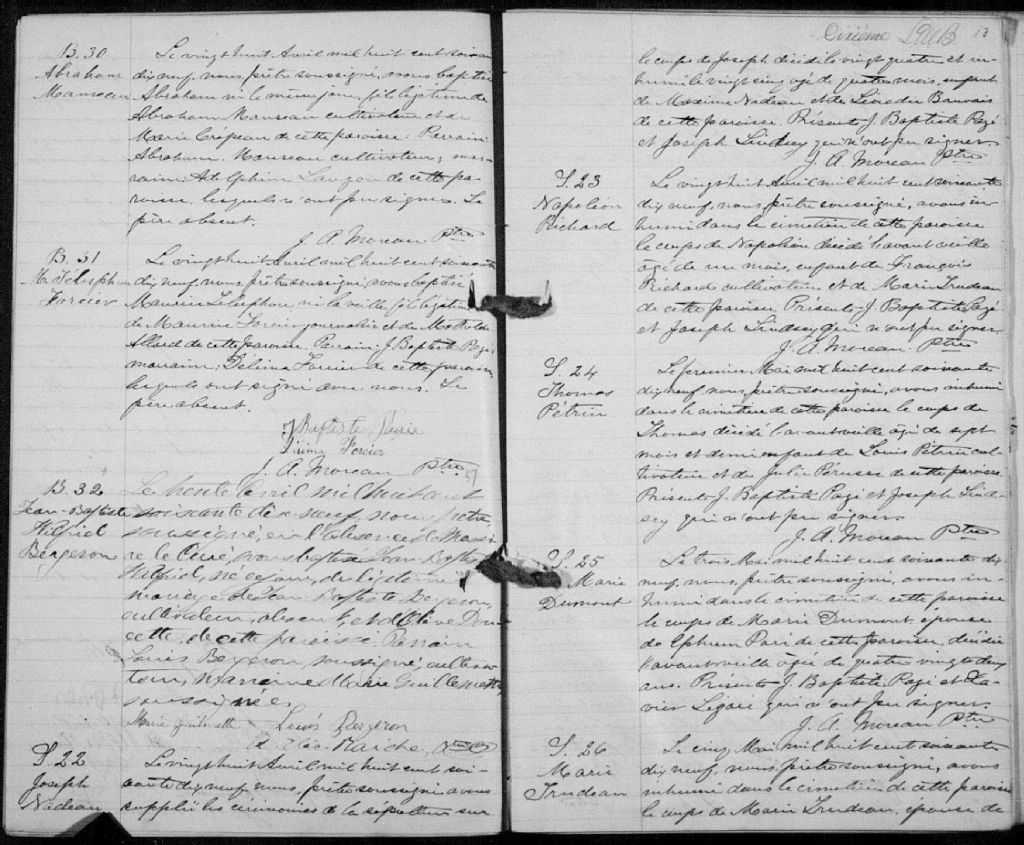 B. 30
Abraham
Manseau
Le vingt huit Avril mil huit cent soixan
dix neuf, nous, prêtre soussigné, avons baptisé
Abraham né le même jour, fils légitime de
Abraham Manseau cultivateur et de
Marie Crépeau de cette paroisse. Parrain
Abraham Manseau cultivateur; mar-
raine Adelphine Lauzon de cette pa-
roisse, lesquels n'ont pu signer. Le
père absent.
J. A. Moreau Ptre
B. 31
M. Télesphore
Forcier
Le vingt huit Avril mil huit cent soixante
dix neuf, nous, prêtre soussigné, avons baptisé
Maurice Télesphore né la veille, fils légitime
de Maurice Forcier journalier et de Mathilde
Allard de cette paroisse. Parrain J. Baptiste Pagé
marraine Délima Forcier de cette paroisse,
lesquels ont signé avec nous. Le
père absent.
J Baptiste
Délima Forcier
J. A. Moreau Ptre
B. 32
Jean-Baptiste
Wilfrid
Bergeron
Le trente Avril mil huit cent
soixante dix-neuf, nous, prêtre
soussigné, en l'absence de Messi-
re le Curé, avons baptisé Jean Baptiste
Wilfrid, né ce jour, du légitime
mariage de Jean Baptiste Bergeron,
cultivateur, absent, et d'Olive Du-
cette, de cette paroisse. Parrain
Louis Bergeron, soussigné, cultiva-
teur, Marraine Marie Guillemette
soussignée.
Marie Guillemette Louis Bergeron
Ptre
S. 22
Joseph
Nadeau
Le vingt huit Avril mil huit cent soi-
xante dix neuf, nous, prêtre soussigné, avons
suppléé les cérémonies de la sépulture sur
Dixième
12
le corps de Joseph décédé le vingt quatre et in-
humé le vingt cinq âgé de quatre mois, enfant
de Maxime Nadeau et de Bauvais
de cette paroisse. Présents J. Baptiste Pagé
et Joseph Lindsey qui n'ont pu signer.
J. A. Moreau Ptre
S. 23
Napoléon
Richard
Le vingt huit Avril mil huit cent soixante
dix neuf, nous, prêtre soussigné, avons in-
humé dans le cimetière de cette paroisse
le corps de Napoléon décédé l'avant veille
âgé de un mois, enfant de François
Richard cultivateur et de Marie Trudeau
de cette paroisse. Présents J. Baptiste Pagé
et Joseph Lindsey qui n'ont pu signer.
J. A. Moreau Ptre
S. 24
Thomas
Pétrin
Le premier Mai mil huit cent soixante
dix neuf, nous, prêtre soussigné, avons inhumé
dans le cimetière de cette paroisse le corps de
Thomas décédé l'avant veille âgé de sept
mois et demi enfant de Louis Pétrin cul-
tivateur et de Julie Pérusse de cette paroisse
Présents J. Baptiste Pagé et Joseph Lind-
sey qui n'ont pu signer.
J. A. Moreau Ptre
S. 25
Marie
Dumont
Le trois Mai mil huit cent soixante dix
neuf, nous, prêtre soussigné, avons in-
humé dans le cimetière de cette paroisse
le corps de Marie Dumont, épouse
de Ephrem Paré de cette paroisse, décédée
l'avant veille âgée de quatre vingt deux
ans. Présents J. Baptiste Pagé et Xa-
vier Legaré qui n'ont pu signer.
J. A. Moreau Ptre
S. 26
Marie
Trudeau
Le cinq Mai mil huit cent soixante
dix neuf, nous, prêtre soussigné, avons
inhumé dans le cimetière de cette paroisse
le corps de Marie Trudeau, épouse de